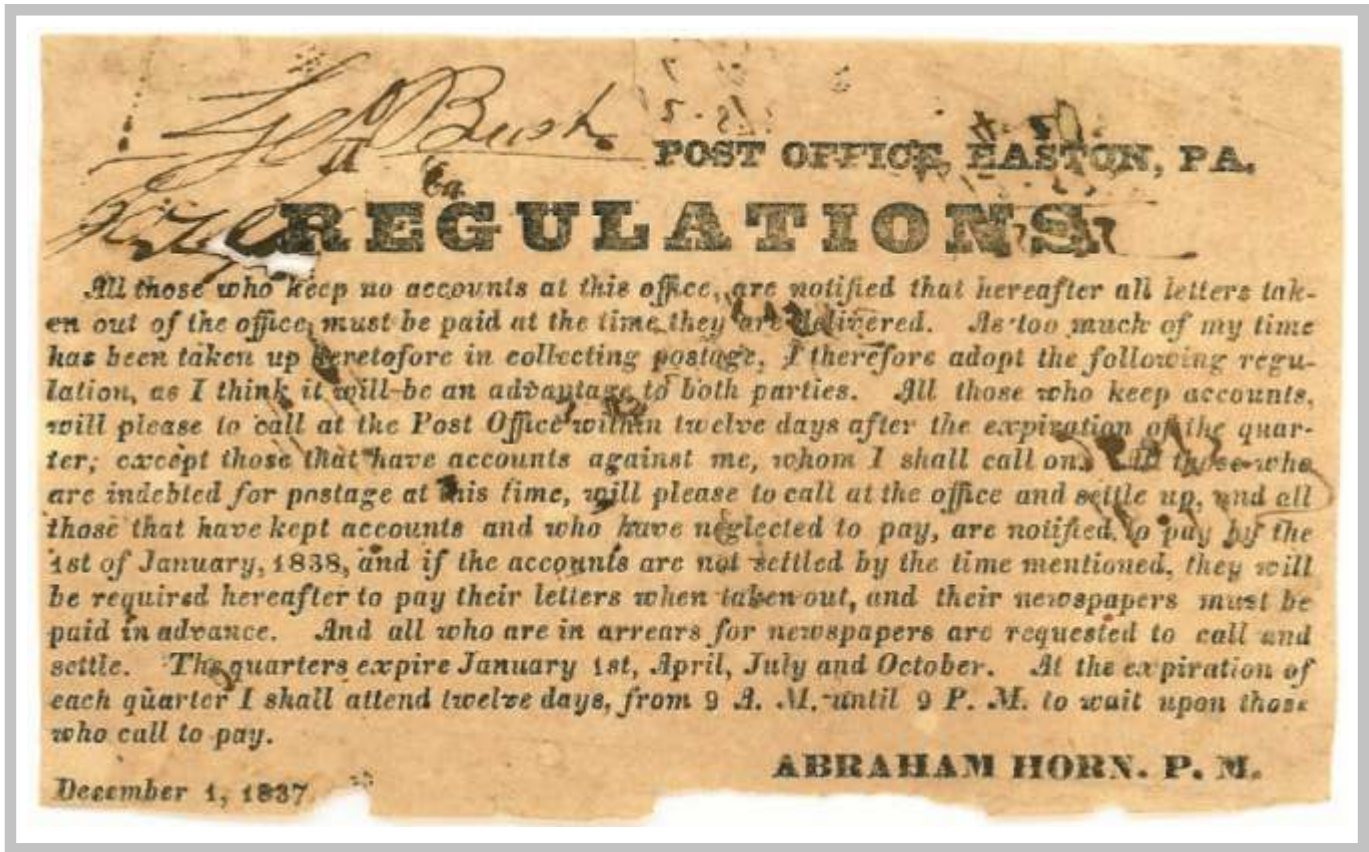 Geo Bush
POST OFFICE, EASTON, PA.
REGULATIONS
All those who keep no accounts at this office, are notified that hereafter all letters tak-
en out of the office, must be paid at the time they are delivered. As too much of my time
has been taken up heretofore in collecting postage, I therefore adopt the following regu-
lation, as I think it will be an advantage to both parties. All those who keep accounts,
will please to call at the Post Office within twelve days after the expiration of the quar-
ter; except those that have accounts against me, whom I shall call on. All those who
are indebted for postage at this time, will please to call at the office and settle up, and all
those that have kept accounts and who have neglected to pay, are notified to pay by the
1st of January, 1838, and if the accounts are not settled by the time mentioned, they will
be required hereafter to pay their letters when taken out, and their newspapers must be
paid in advance. And all who are in arrears for newspapers are requested to call and
settle. The quarters expire January 1st, April, July and October. At the expiration of
each quarter I shall attend twelve days, from 9 A. M. until 9 P. M. to wait upon those
who call to pay.
ABRAHAM HORN. P. M.
December 1, 1837